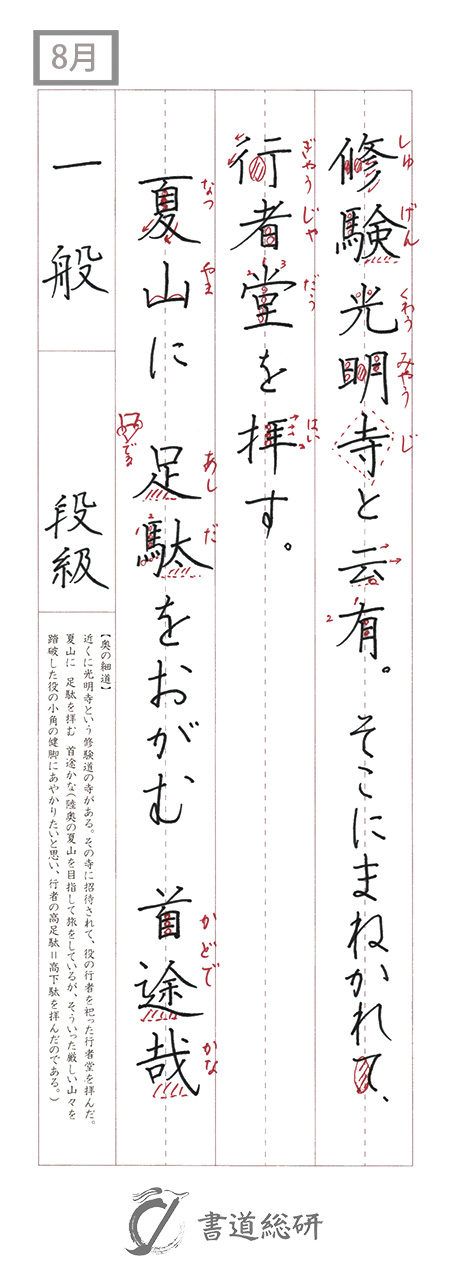 8月
修験光明寺と云有。そこにまねかれて、
しゅ げん くわう みやう じ
行者堂を拝す。
ぎやう じや だう はい
夏山に 足駄をおがむ 首途哉
なつ やま あし だ かどで かな
一般 段級
【奥の細道】
近くに光明寺という修験道の寺がある。その寺に招待されて、役の行者を祀った行者堂を拝んだ。
夏山に 足駄を拝む 首途かな(陸奥の夏山を目指して旅をしているが、そういった厳しい山々を
踏破した役の小角の健脚にあやかりたいと思い、行者の高足駄=高下駄を拝んだのである。)
書道総研